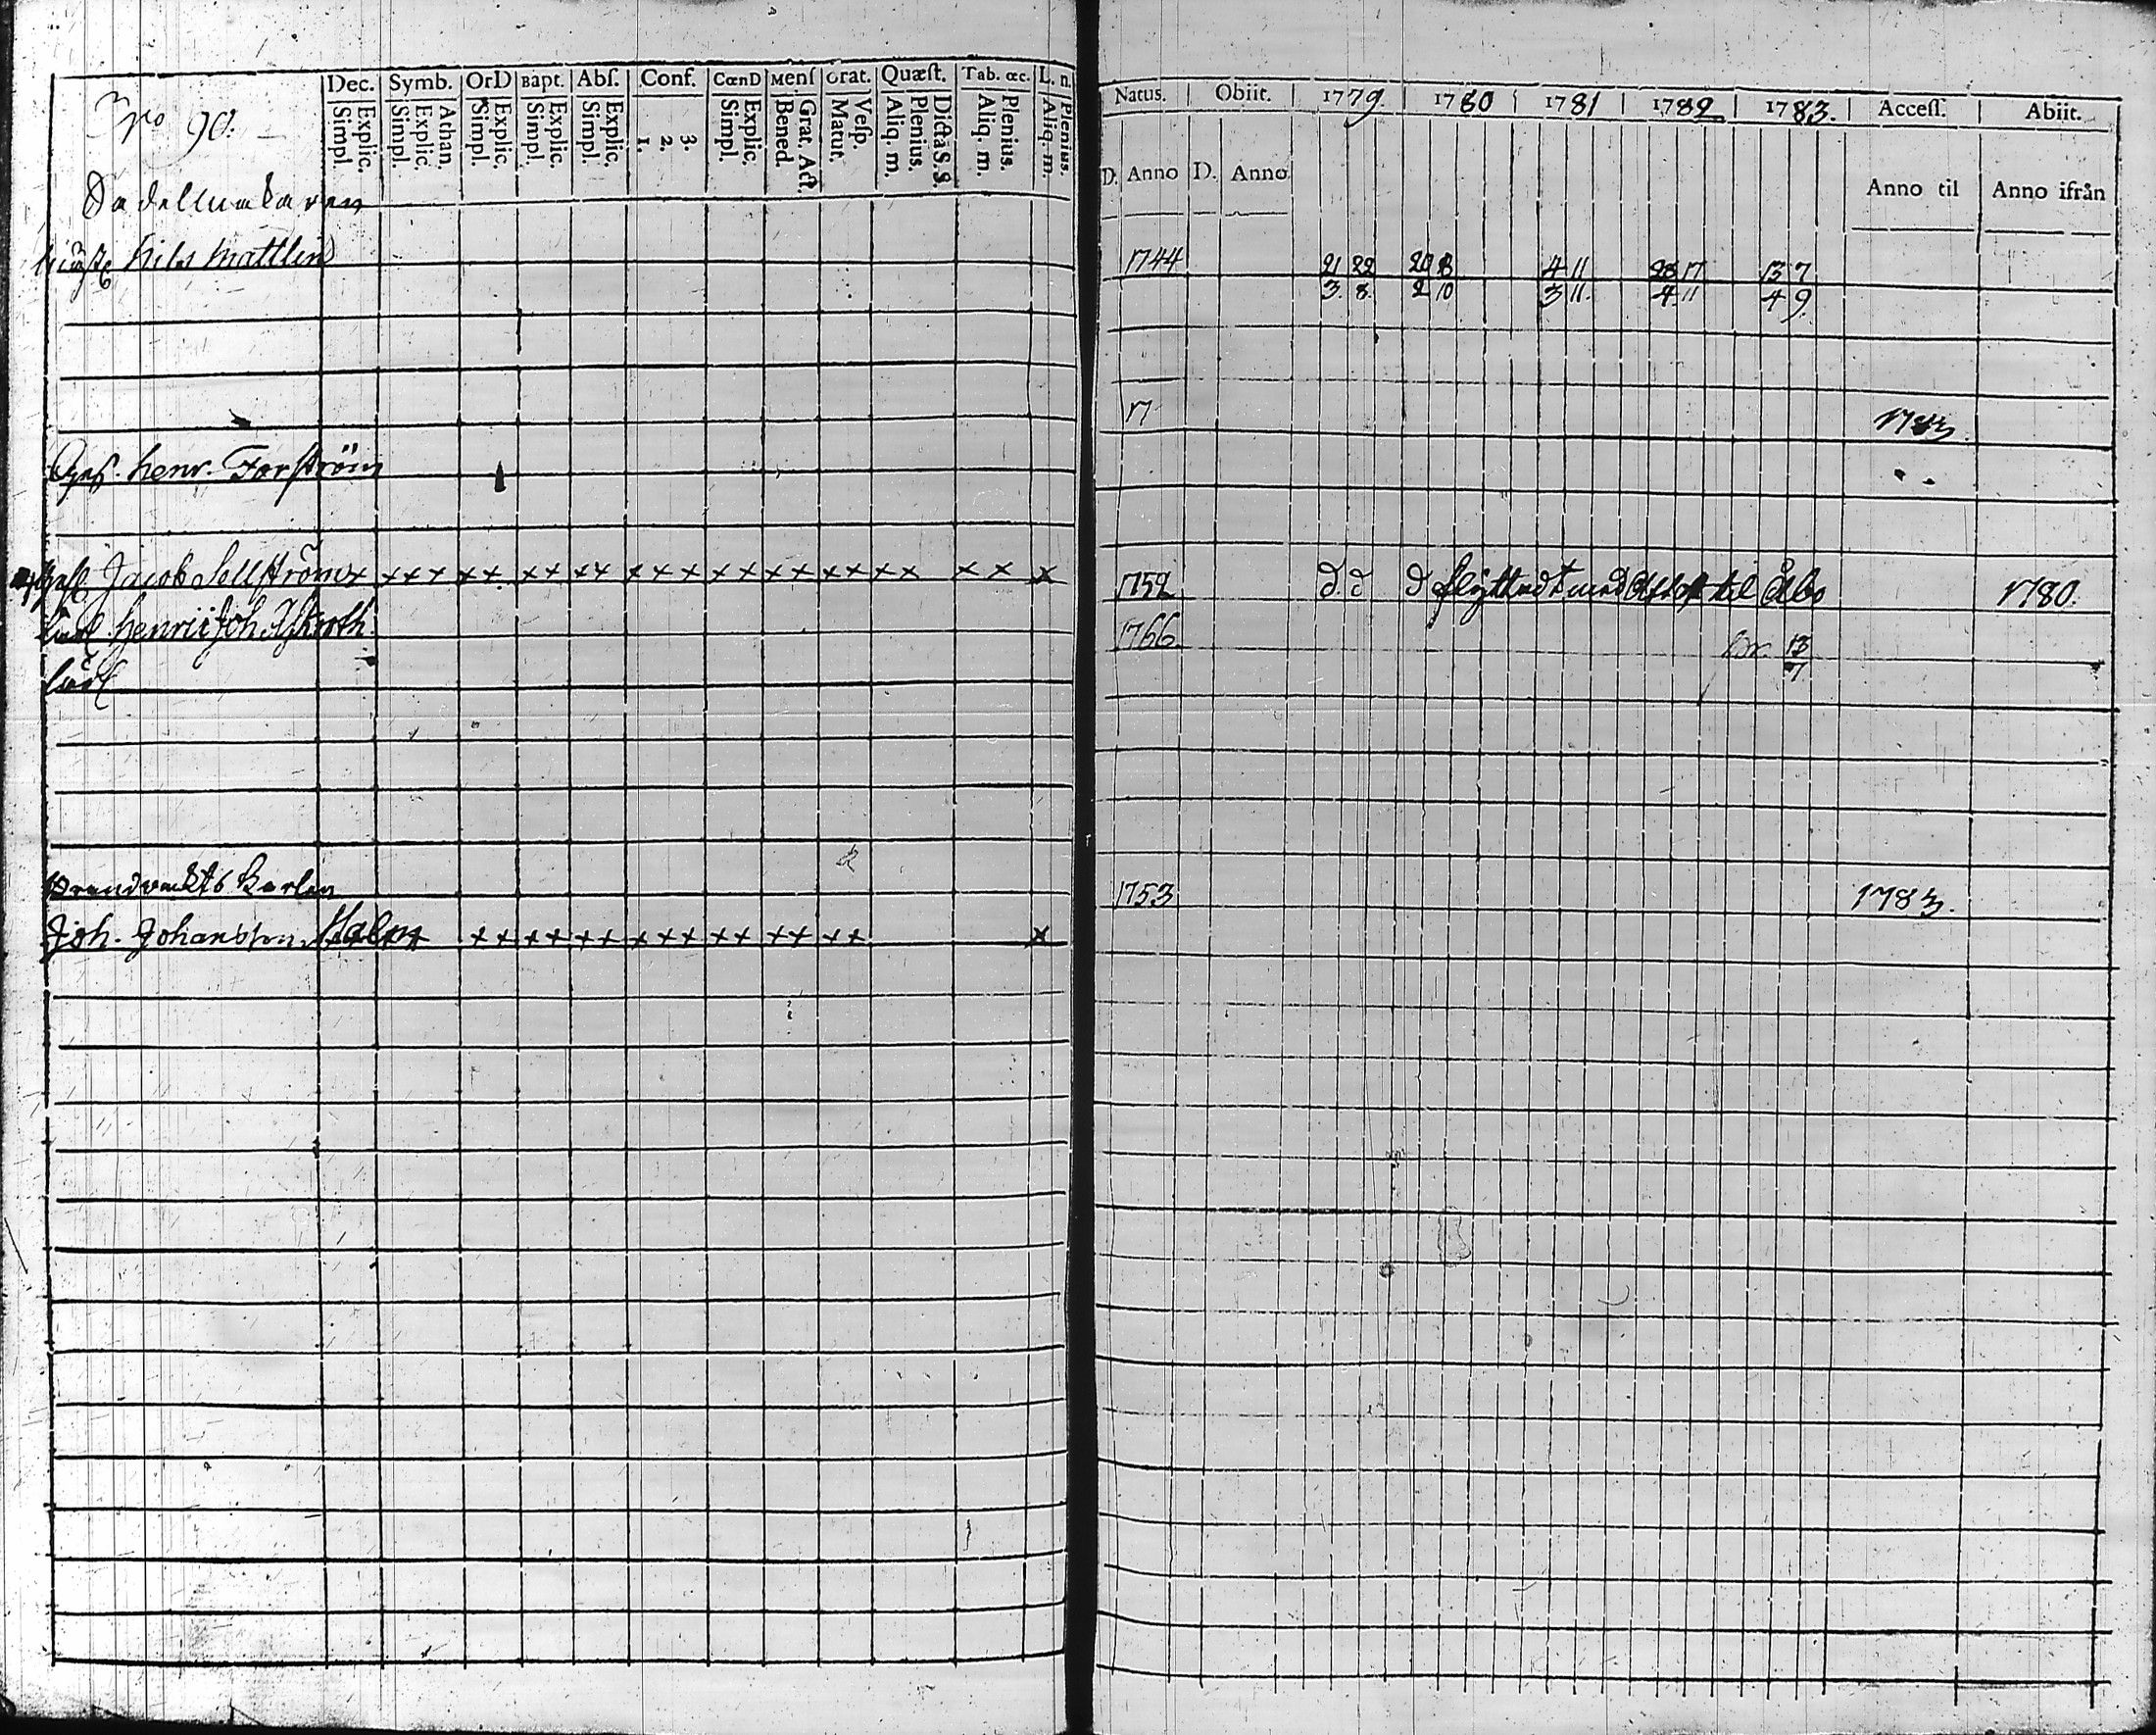 Dec. Symb. OrD Bapt. Abſ. Conf. CœnD Menſ Orat. Quæſt. Tab. œc. L. n.
Simpl. Explic. Simpl. Explic. Athan. Simpl. Explic. Simpl. Explic. Simpl. Explic. 1. 2. 3. Simpl. Explic. Bened. Grat. Act. Matut. Veſp. Aliq. m. Plenius. Dicta S. S. Aliq. m. Plenius. Aliq. m. Plenius.
No 90.
Sadelmakaren
Nils Mattlin
Ges. henr. Forström
Gesl Jacob Sellström x x x x x x x x x x x x x x x x x x x x x x x x
Henric Joh.
Brandvackts Karlen
Joh. Johansson Malm x x x x x x x x x x x x x x x x
Natus. Obiit. 1779. 1780 1781 1782 1783. Acceſſ. Abiit.
D. Anno D. Anno Anno til Anno ifrån
1744 21 22 20 8 4 11 28 17 13 7
3. 8. 2 10 3 11. 4. 11 4 9.
17 1783.
1752 flyttadt med Attest til Åbo 1780.
1766. 13
7
1753 1783.